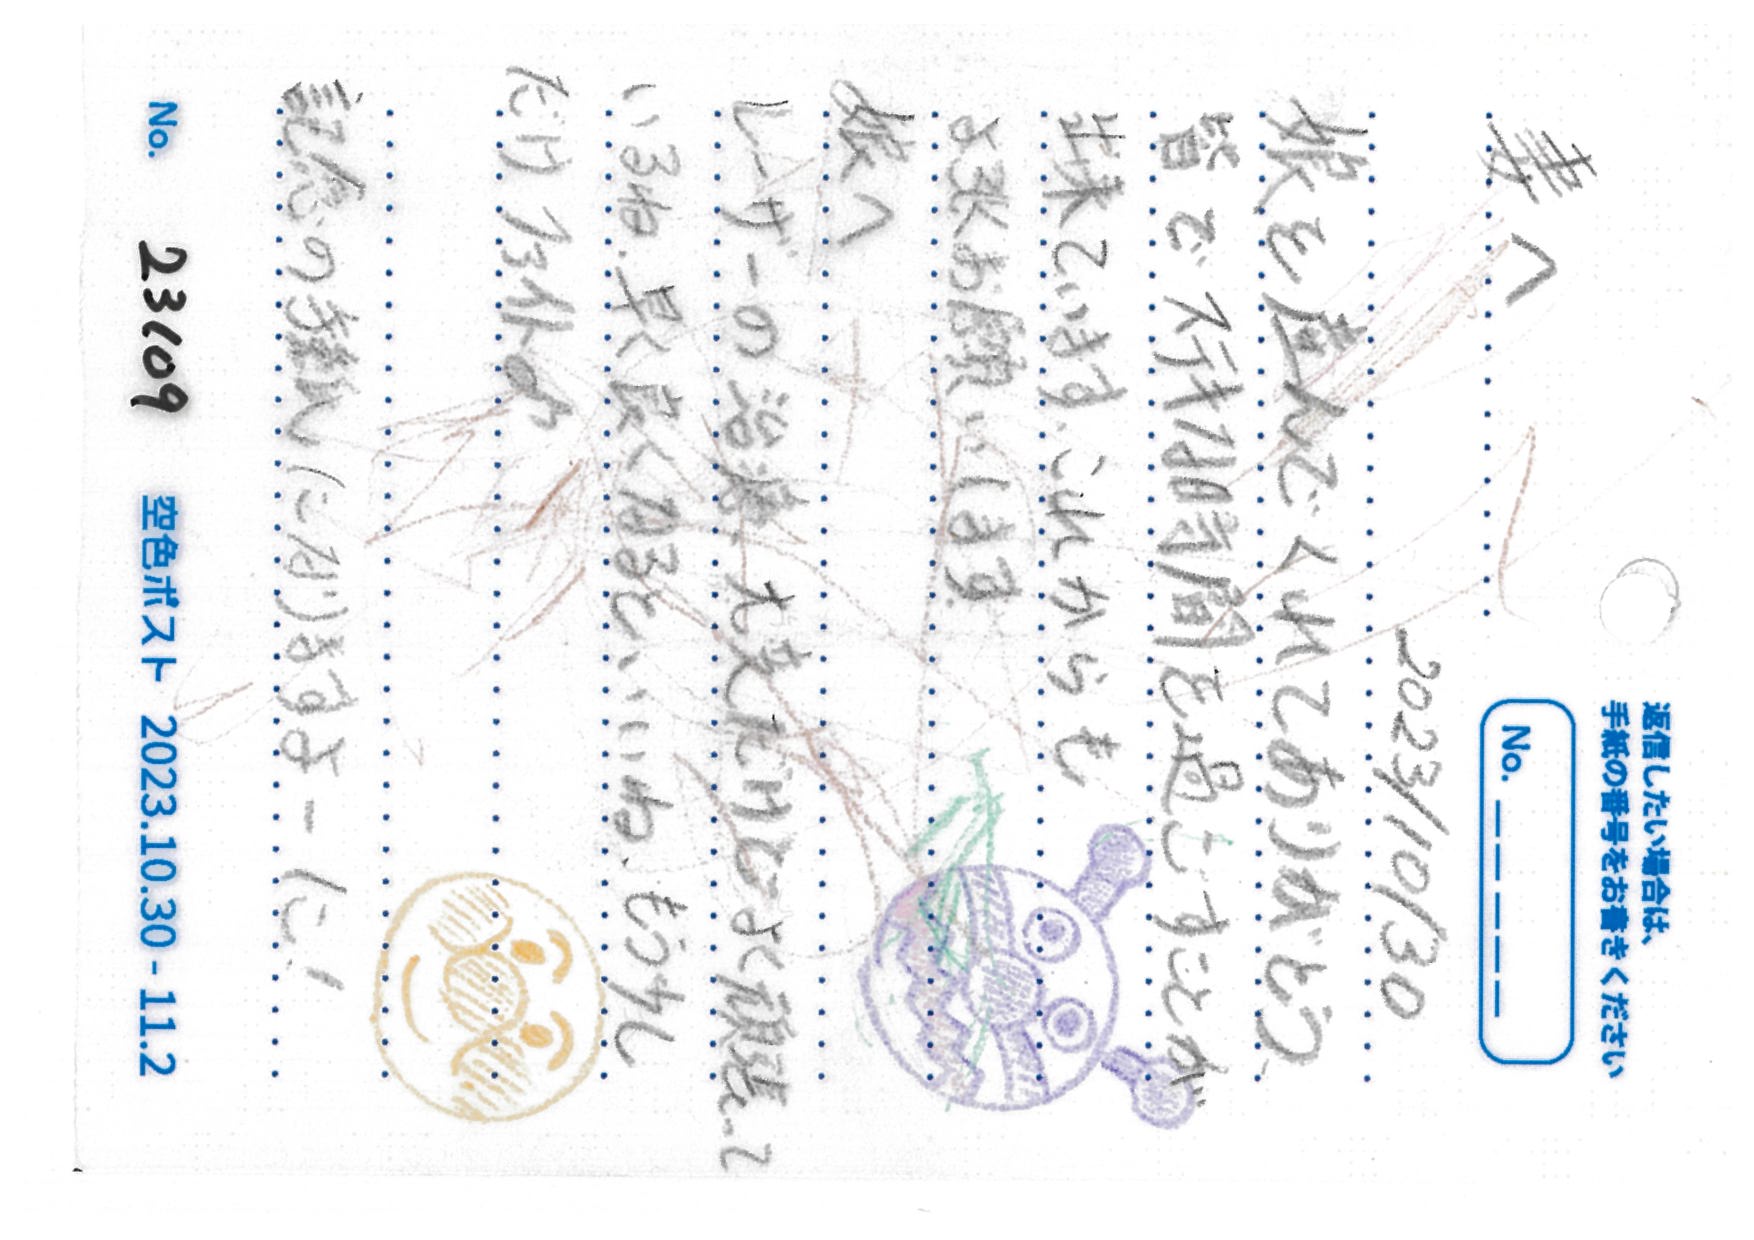 返信したい場合は、
手紙の番号をお書きください
No. _ _ _ _ _
妻へ
2023/10/30
娘を産んでくれてありがとう、
皆でステキな時間を過ごすことが
出来ています。これからも
よろしくお願いします。
娘へ
レーザーの治療、大変だけどよく頑張って
いるね、早く良くなるといいね、もう少し
だけファイト♪
記念の手紙になりますよーに!
No. 23109
空色ポスト 2023.10.30 - 11.2